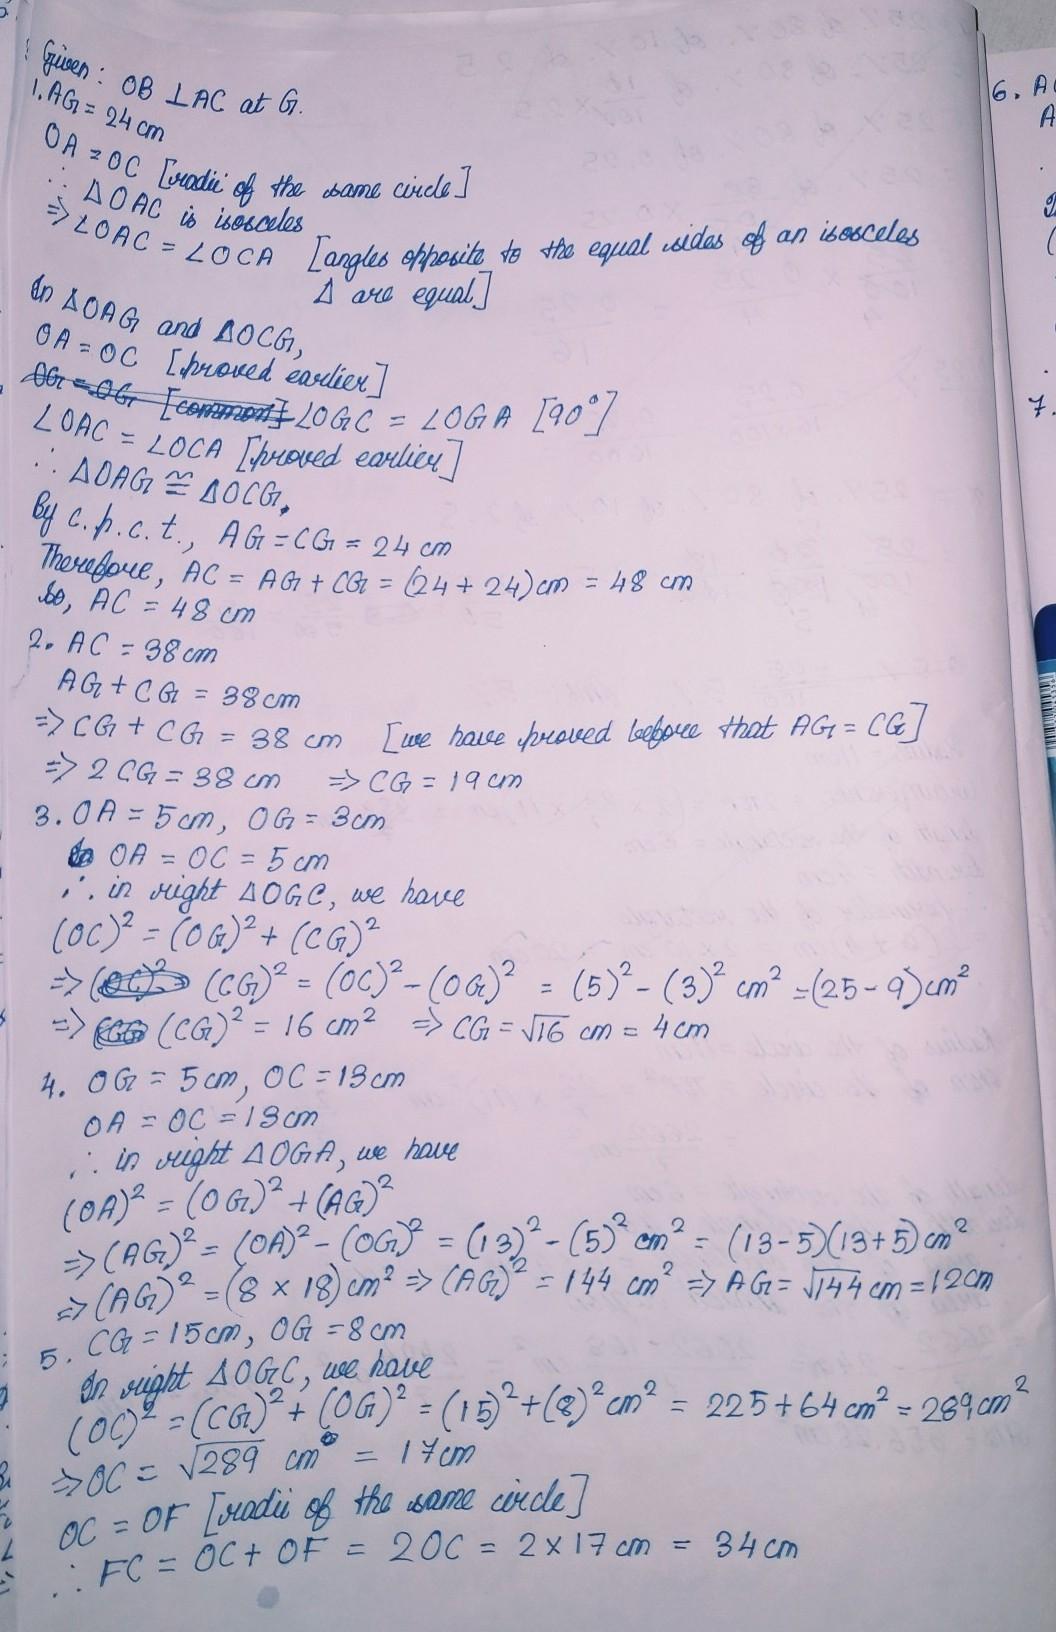 Given: OB ⊥ AC at G.
1. AG = 24 cm
OA = OC [radii of the same circle]
∴ ΔOAC is isosceles
⇒ ∠OAC = ∠OCA [angles opposite to the equal sides of an isosceles
Δ are equal]
In ΔOAG and ΔOCG,
OA = OC [proved earlier]
OG = OG [common] ∠OGC = ∠OGA [90°]
∠OAC = ∠OCA [proved earlier]
∴ ΔOAG ≅ ΔOCG,
By c.p.c.t., AG = CG = 24 cm
Therefore, AC = AG + CG = (24 + 24) cm = 48 cm
So, AC = 48 cm
2. AC = 38 cm
AG + CG = 38 cm
⇒ CG + CG = 38 cm [we have proved before that AG = CG]
⇒ 2 CG = 38 cm ⇒ CG = 19 cm
3. OA = 5 cm, OG = 3 cm
OA = OC = 5 cm
∴ in right ΔOGC, we have
(OC)² = (OG)² + (CG)²
⇒ (CG)² = (OC)² - (OG)² = (5)² - (3)² cm² = (25 - 9) cm²
⇒ (CG)² = 16 cm² ⇒ CG = √16 cm = 4 cm
4. OG = 5 cm, OC = 13 cm
OA = OC = 13 cm
∴ in right ΔOGA, we have
(OA)² = (OG)² + (AG)²
⇒ (AG)² = (OA)² - (OG)² = (13)² - (5)² cm² = (13-5)(13+5) cm²
⇒ (AG)² = (8 × 18) cm² ⇒ (AG)² = 144 cm² ⇒ AG = √144 cm = 12 cm
5. CG = 15 cm, OG = 8 cm
In right ΔOGC, we have
(OC)² = (CG)² + (OG)² = (15)² + (8)² cm² = 225 + 64 cm² = 289 cm²
⇒ OC = √289 cm = 17 cm
OC = OF [radii of the same circle]
∴ FC = OC + OF = 2OC = 2 × 17 cm = 34 cm
6. A
A
7.